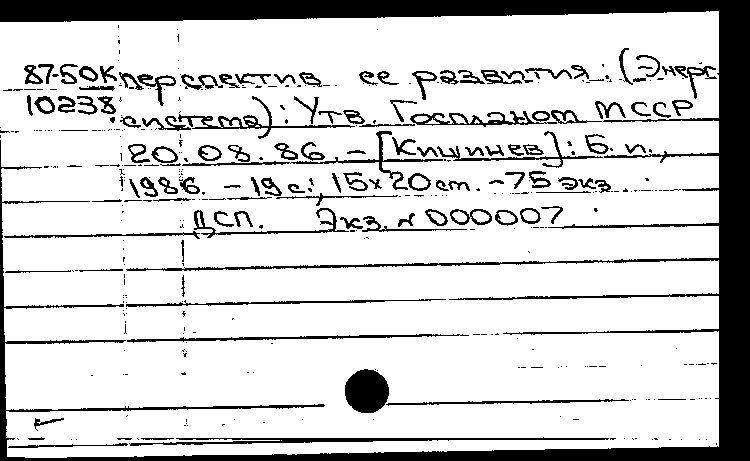 87-50К перспектив ее развития: (Энерго-
10238 система): Утв. Госпланом МССР
20.08.86. - [Кишинев]: Б. и.,
1986. - 19 с.; 15х20 см. - 75 экз.
ДСП. Экз. N 000007